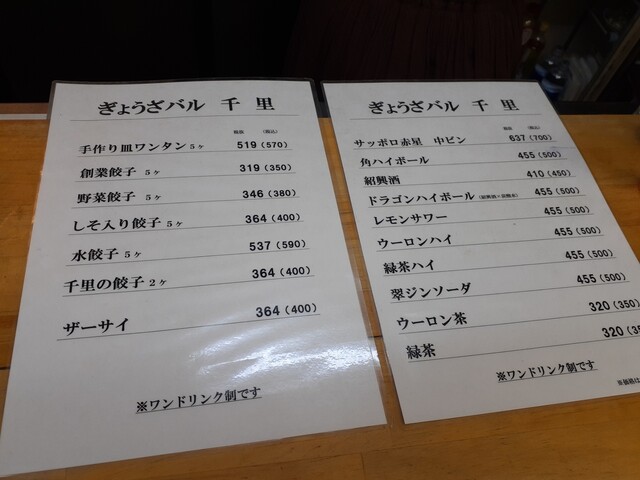 ぎょうざバル 千里
税抜 (税込)
手作り皿ワンタン 5ヶ 519 (570)
創業餃子 5ヶ 319 (350)
野菜餃子 5ヶ 346 (380)
しそ入り餃子 5ヶ 364 (400)
水餃子 5ヶ 537 (590)
千里の餃子 2ヶ 364 (400)
ザーサイ 364 (400)
※ワンドリンク制です
ぎょうざバル 千里
税抜 (税込)
サッポロ赤星 中ビン 637 (700)
角ハイボール 455 (500)
紹興酒 410 (450)
ドラゴンハイボール (紹興酒×炭酸水) 455 (500)
レモンサワー 455 (500)
ウーロンハイ 455 (500)
緑茶ハイ 455 (500)
翠ジンソーダ 455 (500)
ウーロン茶 320 (350
緑茶 320 (35
※ワンドリンク制です
※価格は